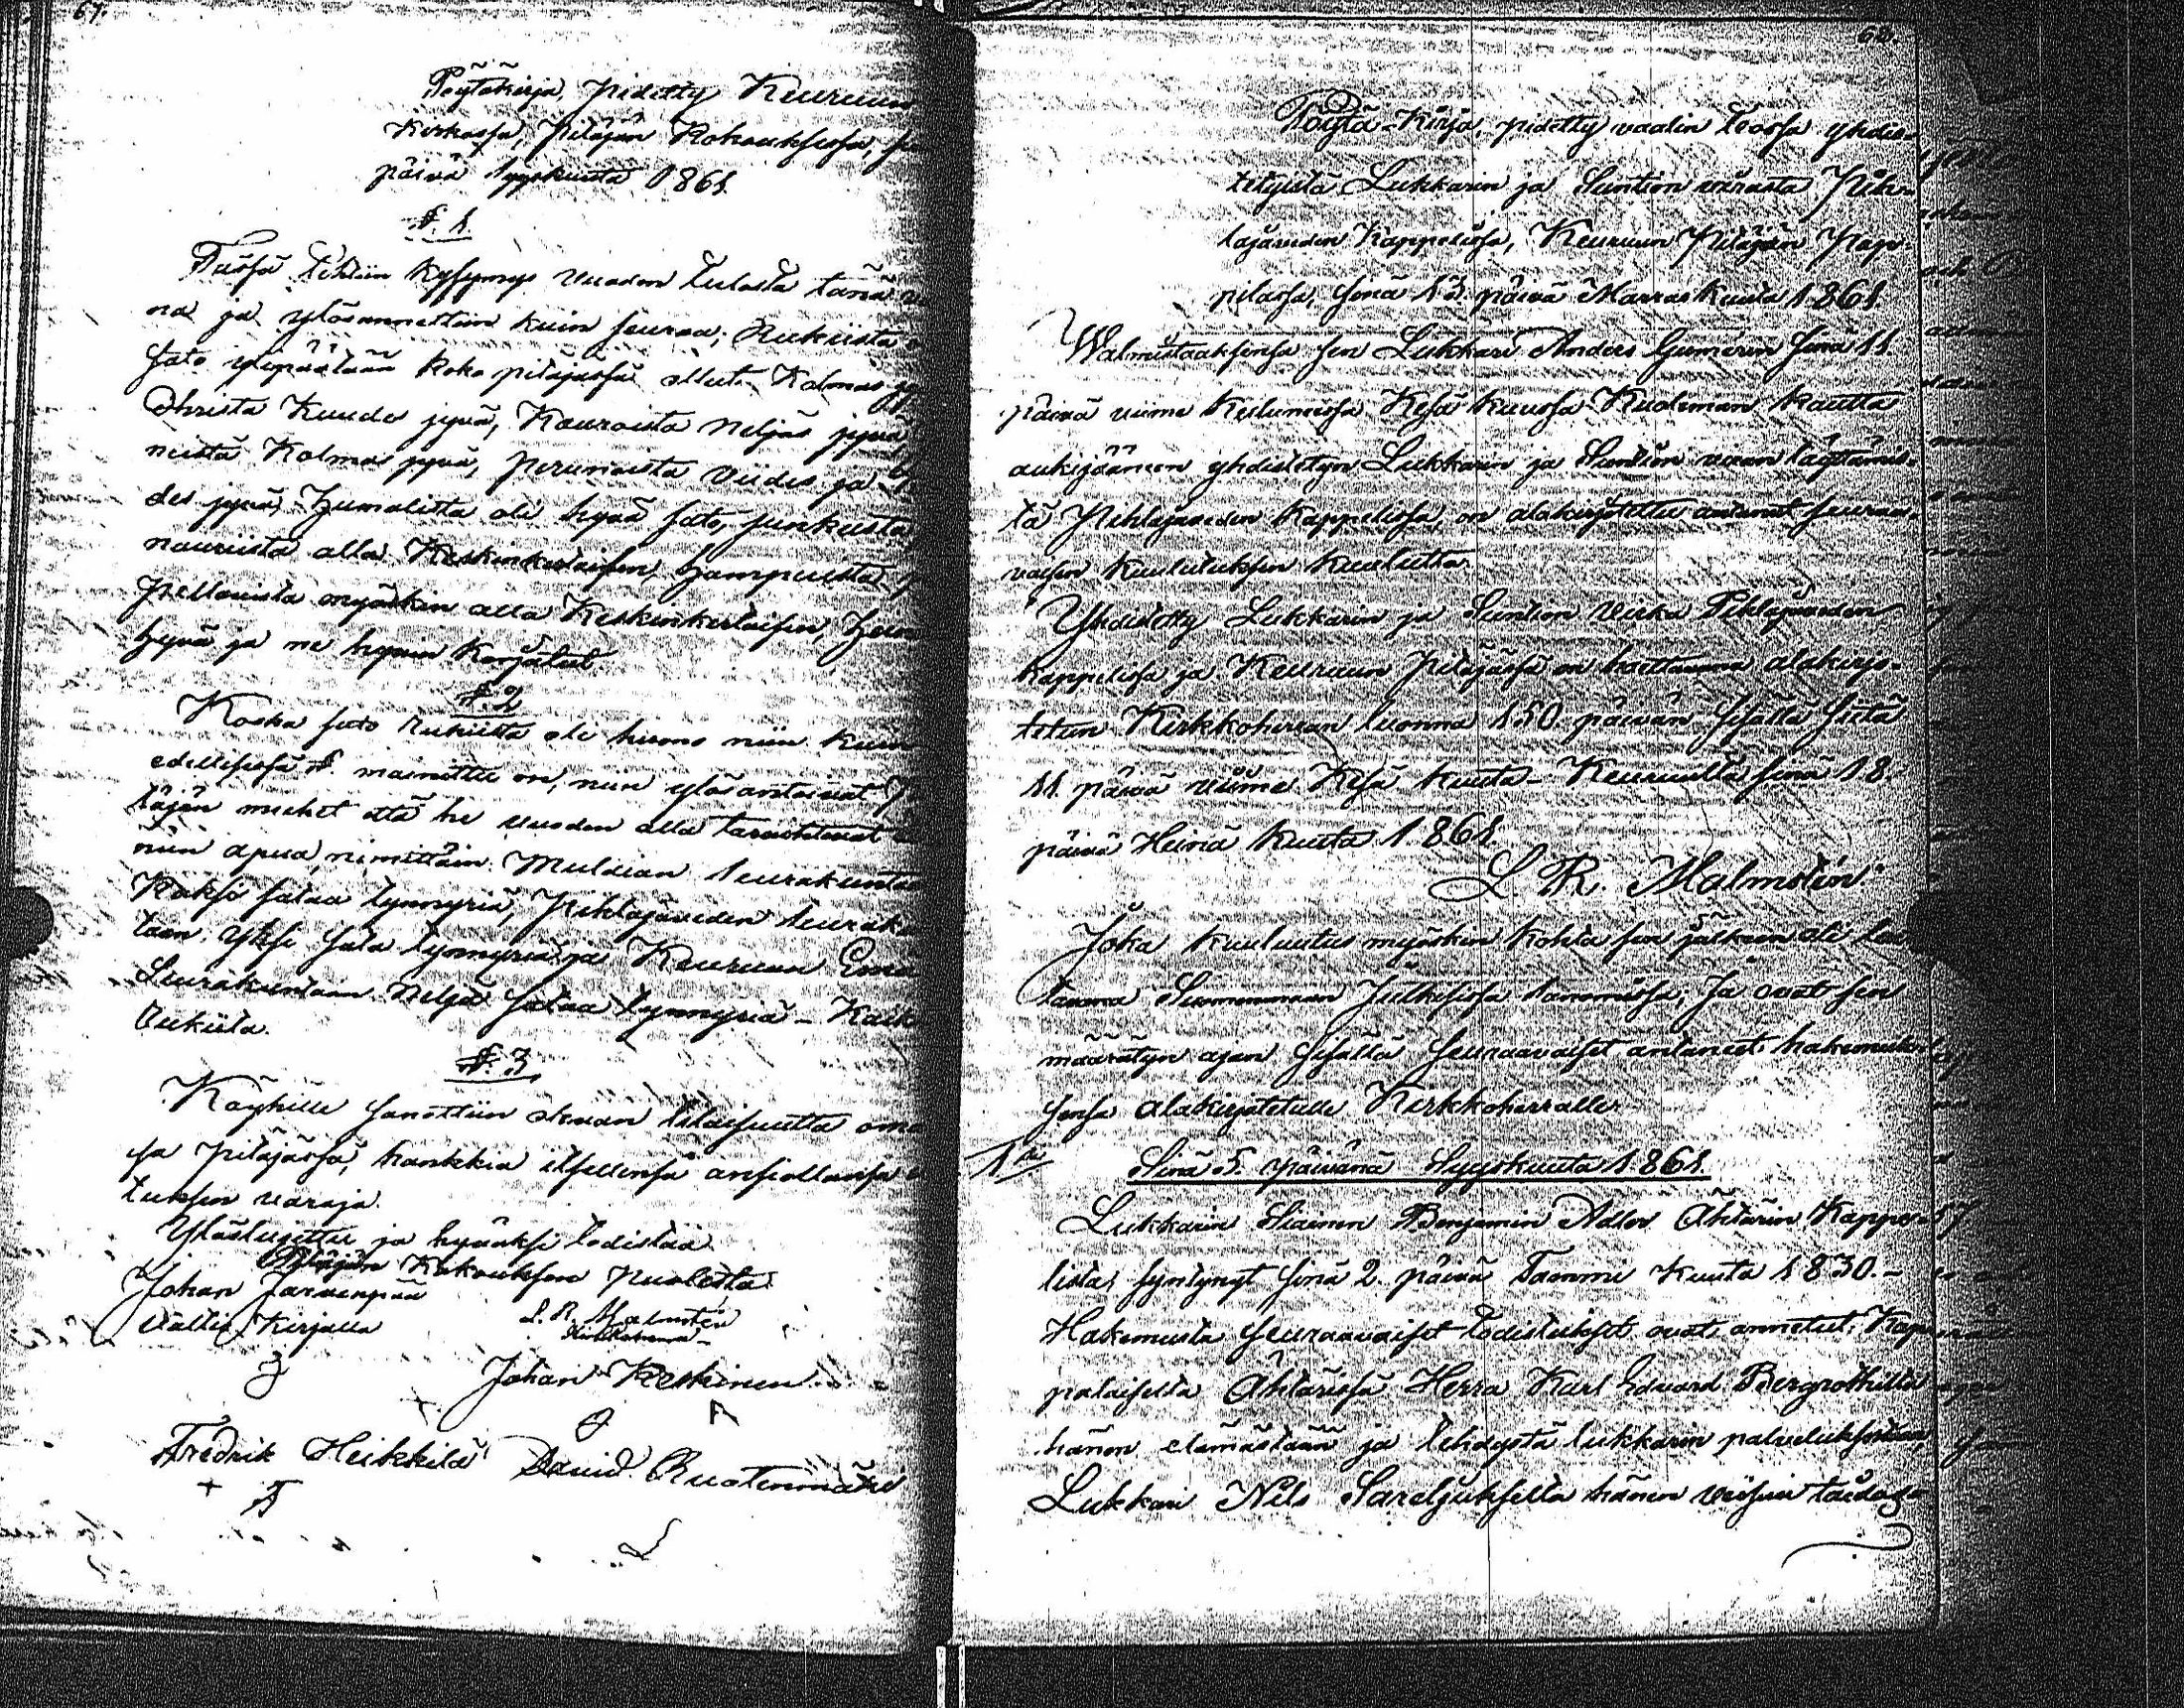 61.
Pöytäkirja, pidetty Keuruun
Kirkossa, Pitäjän Kokouksessa,
päivä Syyskuuta 1861.
§. 1.
Tässä tehtiin kysymys vuoden tulosta tänä
na ja ylösannettiin kuin seuraa; Rukiista
sato ylipäätään koko pitäjässä ollut Kolmas
Ohrista Kuudes jyvä, Kauroista neljäs jyvä
neistä Kolmas jyvä, perunoista viides ja
des jyvä, Humalista oli hyvä sato,
nauriista alla Keskinkertaisen, Hampuista
Pellavista myöskin alla Keskinkertaisen,
hyvä ja ne hyvin korjatut.
§. 2
Koska sato Rukiista oli huono niin kuin
edellisessä §. mainittu on, niin ylösantoivat
täjän miehet että he vuoden alla tarvitsevat
niin apua, nimittäin Multian Seurakuntaan
Kaksi sataa tynnyriä, Pihlajaveden Seuraku
taan Yksi Sata tynnyriä ja Keuruun Emä
Seurakuntaan Neljä Sataa tynnyriä – Kaik
Rukiita.
§. 3
Köyhille sanottiin olevan tilaisuutta oma
sa Pitäjässä, hankkia itsellensä ansiollansa
tuksen varoja.
Ylösluettu ja hyväksi todistaa
Pitäjän Kokouksen puolesta
Johan Jarvenpää
Valtio Kirjalla
L. R. Malmstén
Kirkkoherra
Johan Keskinen
Fredrik Heikkilä David Ruotenmäki
62.
Pöytä-Kirja, pidetty vaalin teossa yhdis-
tetyistä Lukkarin ja Suntion virasta Pih-
lajaveden Kappelissa, Keuruun Pitäjän Pap-
pilassa, sinä 13. päivä Marras Kuuta 1861.
Walmistaaksensa sen Lukkari Anders Gumerun sinä 11
päivä viime kuluneessa Kesä kuussa Kuoleman kautta
aukijääneen yhdistetyn Lukkarin ja Suntion viran täyttämis-
tä Pihlajaveden Kappelissa, on alakirjoitettu antanut seuraa-
vaisen kuulutuksen kuuluttaa.
"Yhdistetty Lukkarin ja Suntion Virka Pihlajaveden
Kappelissa ja Keuruun Pitäjässä on haettavana alakirjo-
tetun Kirkkoherran luonna 150 päivän sisällä siitä
11. päivä viime Kesä kuuta – Keuruulla sinä 18.
päivä Heinä kuuta 1861.
L. R. Malmstén."
Joka kuulutus myöskin kohta sen jälkeen oli
tavana Suomenmaan Julkisissa Sanomissa; Ja ovat sen
määrätyn ajan sisällä seuraavaiset antaneet hakemuk
sensa alakirjoitetulle Kirkkoherralle.
1ksi Sinä 5. päivänä Syyskuuta 1861.
Lukkarin Siaenen Benjamin Adlov Ähtärin Kappe-
lista, syntynyt sinä 2. päivä Tammi Kuuta 1830. –
Hakemusta seuraavaiset todistukset ovat annetut: Kap
palaiselta Ähtärissä Herra Karl Edvard Bergrothilta
hänen elämästään ja tehdystä lukkarin palveluksestaan,
Lukkari Nils Sareljukselta hänen veisuu taidosta